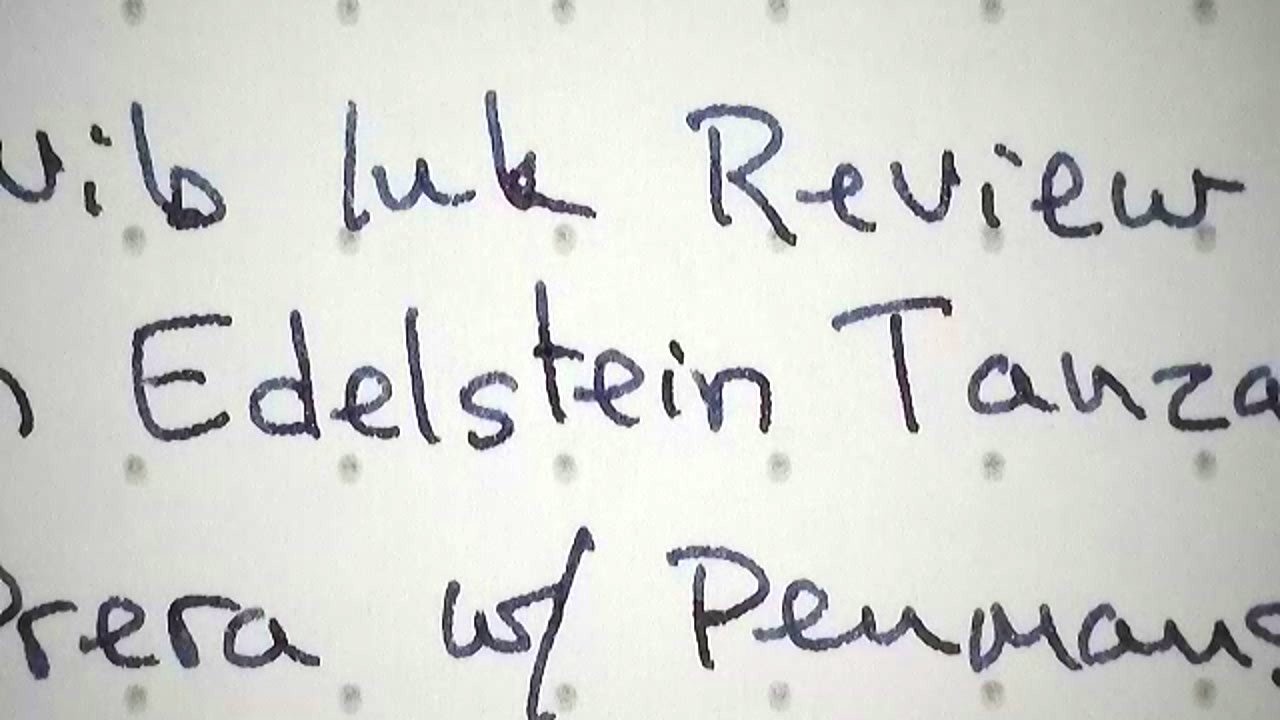 nib Ink Review
n Edelstein Tanza
Prera w/ Penmans